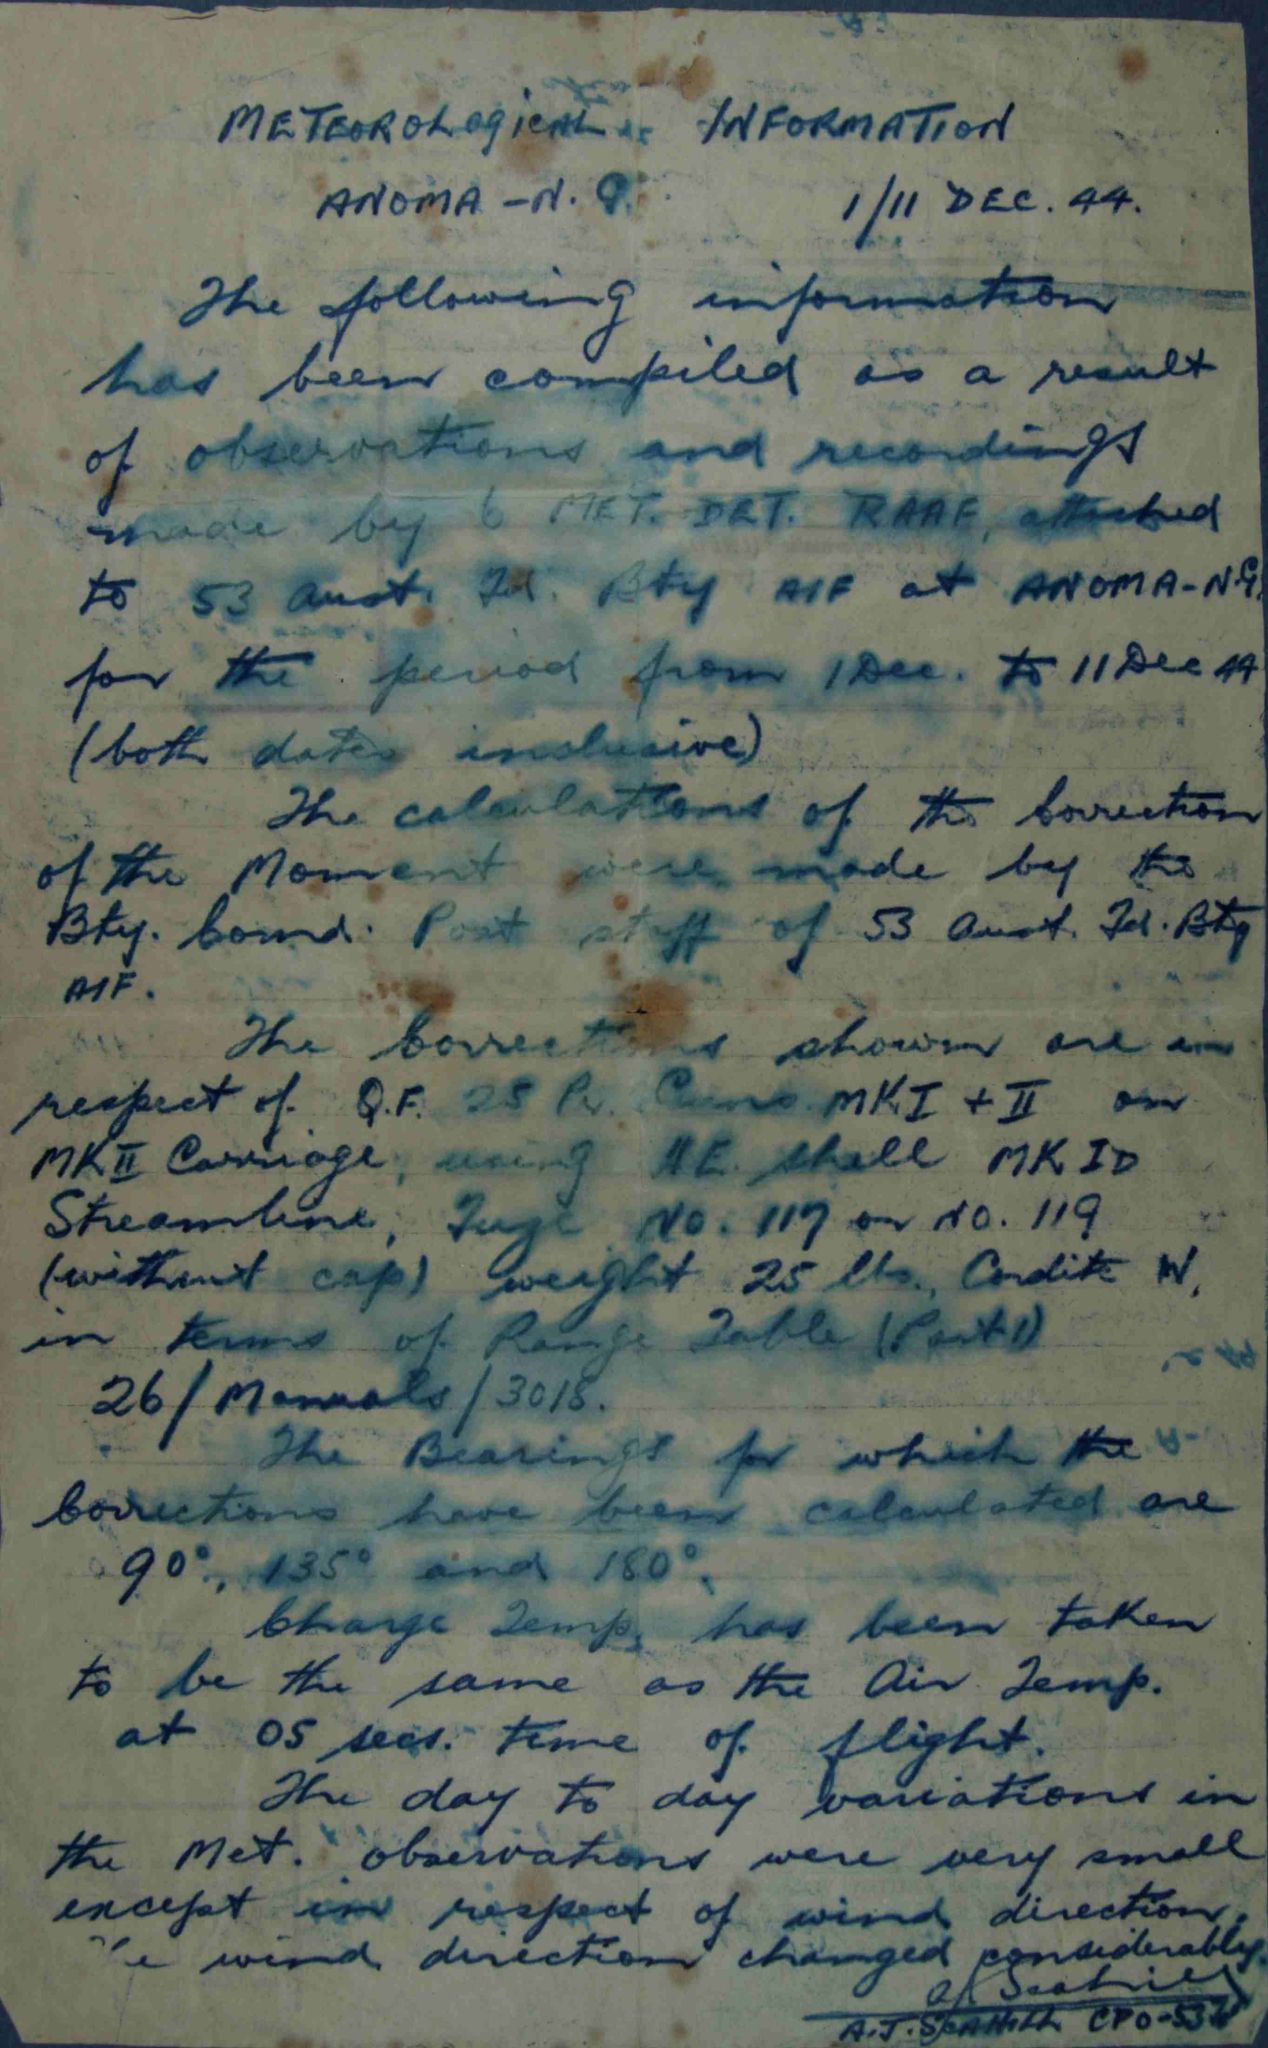 METEOROLOGICAL INFORMATION
ANOMA - N.G. 1/11 DEC. 44.
The following information
has been compiled as a result
of observations and recordings
made by 6 MET. DET. RAAF, attached
to 53 Aust. Fd. Bty AIF at ANOMA - N.G.
for the period from 1 Dec. to 11 Dec 44
(both dates inclusive)
The calculations of the Correction
of the Moment were made by the
Bty. Comd. Post staff of 53 Aust. Fd. Bty
AIF.
The Corrections shown are in
respect of Q.F. 25 Pr. Guns MK I + II on
MK II Carriage, using H.E. shell MK I D
Streamline, Fuze No. 117 or No. 119
(without cap) weight 25 lbs., Cordite W,
in terms of Range Table (Part 1)
26/Manuals/3018.
The Bearings for which the
Corrections have been calculated are
90°, 135° and 180°.
Charge Temp. has been taken
to be the same as the Air Temp.
at 05 secs. time of flight.
The day to day variations in
the Met. observations were very small
except in respect of wind direction.
wind direction changed considerably.
CPO-53